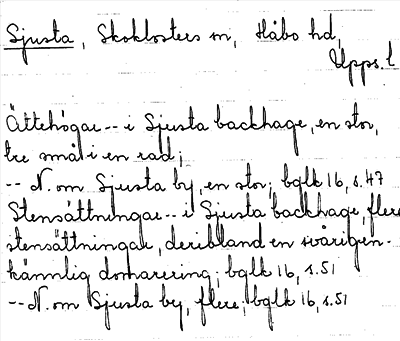 Sjusta, Skoklosters sn, Håbo hd,
Upps. l
Ättehögar -- i Sjusta backhage, en stor,
tre små i en rad;
-- N. om Sjusta by, en stor; bglk 16, s. 47
Stensättningar -- i Sjusta backhage, flere
stensättningar, deribland en svårigen-
kännlig domarering; bglk 16, s. 51
-- N. om Sjusta by, flere; bglk 16, s. 51